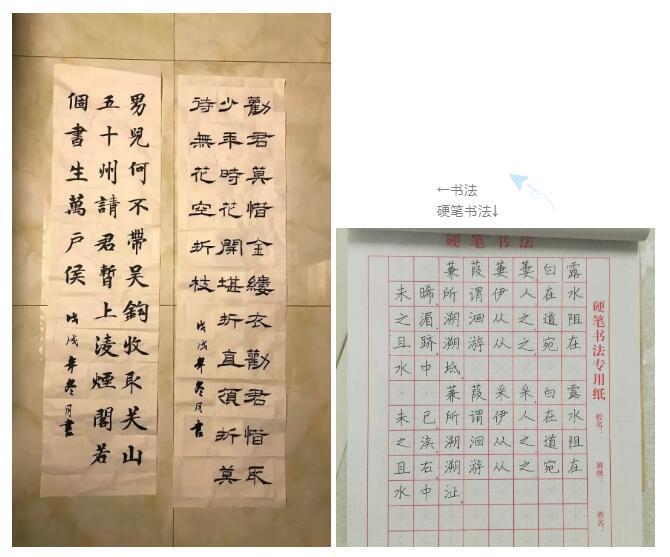 男兒何不帶吴鈎收取关山
五十州請君暫上凌煙閣若
個書生萬戶侯
戊戌年冬月書
勸君莫惜金縷衣勸君惜取
少年時花開堪折直須折莫
待無花空折枝
戊戌年冬月書
←书法
硬笔书法↓
硬笔书法
蒹葭萋萋白露
未晞.所谓伊人.在水
之湄.溯洄从之.道阻
且跻.溯游从之.宛在
水中坻.
蒹葭采采.白露
未已.所谓伊人.在水
之涘.溯洄从之.道阻
且右.溯游从之.宛在
水中沚.
硬笔书法专用纸
校名：
班级：
姓名：